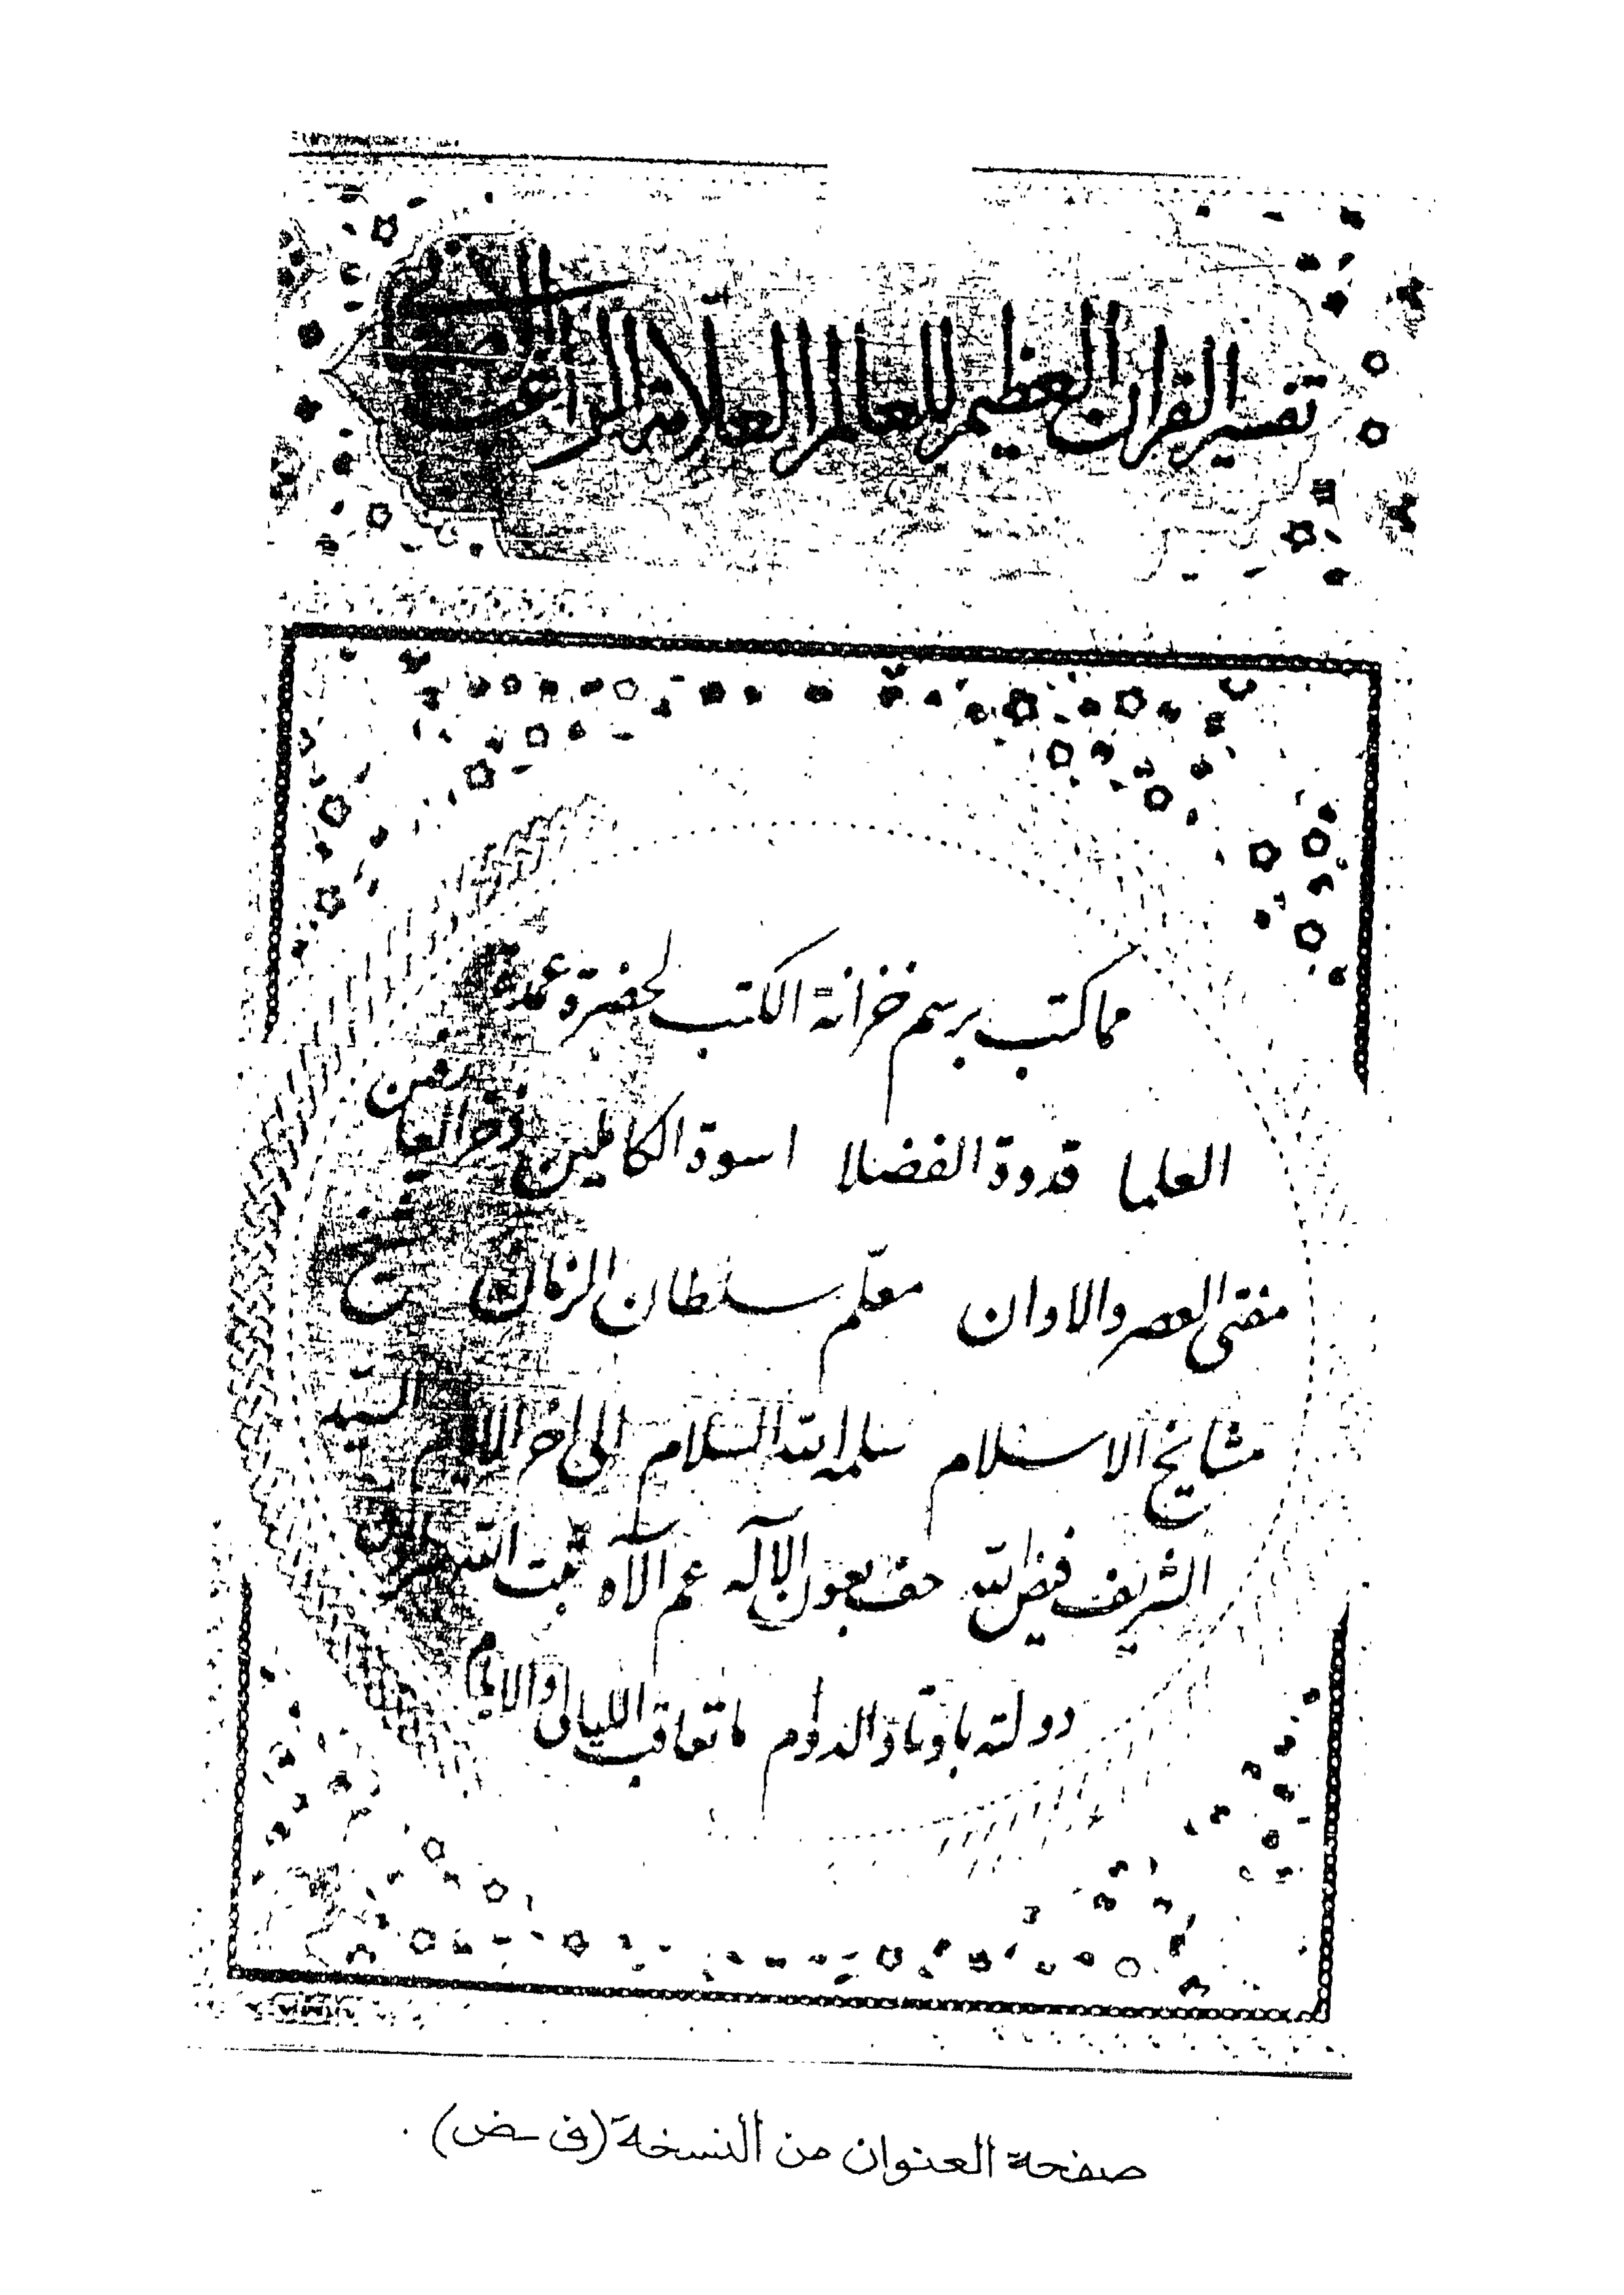 تفسير القران العظيم للعالم العلامة الراغب
مما كتب برسم خزانة الكتب لحضرة عمدة
العلما قدوة الفضلا اسوة الكاملين ذخر العارفين
مفتى العصر والاوان معلّم سلطان الزمان شيخ
مشايخ الاسلام سلمه الله السلام الى اخر الايام السيّد
الشريف فيض الله حف بعون الاله عم الآه ثبت الله
دولته باوتاد الدوام ما تعاقب الليالى والايام
صفحة العنوان من النسخة (ف - ض)